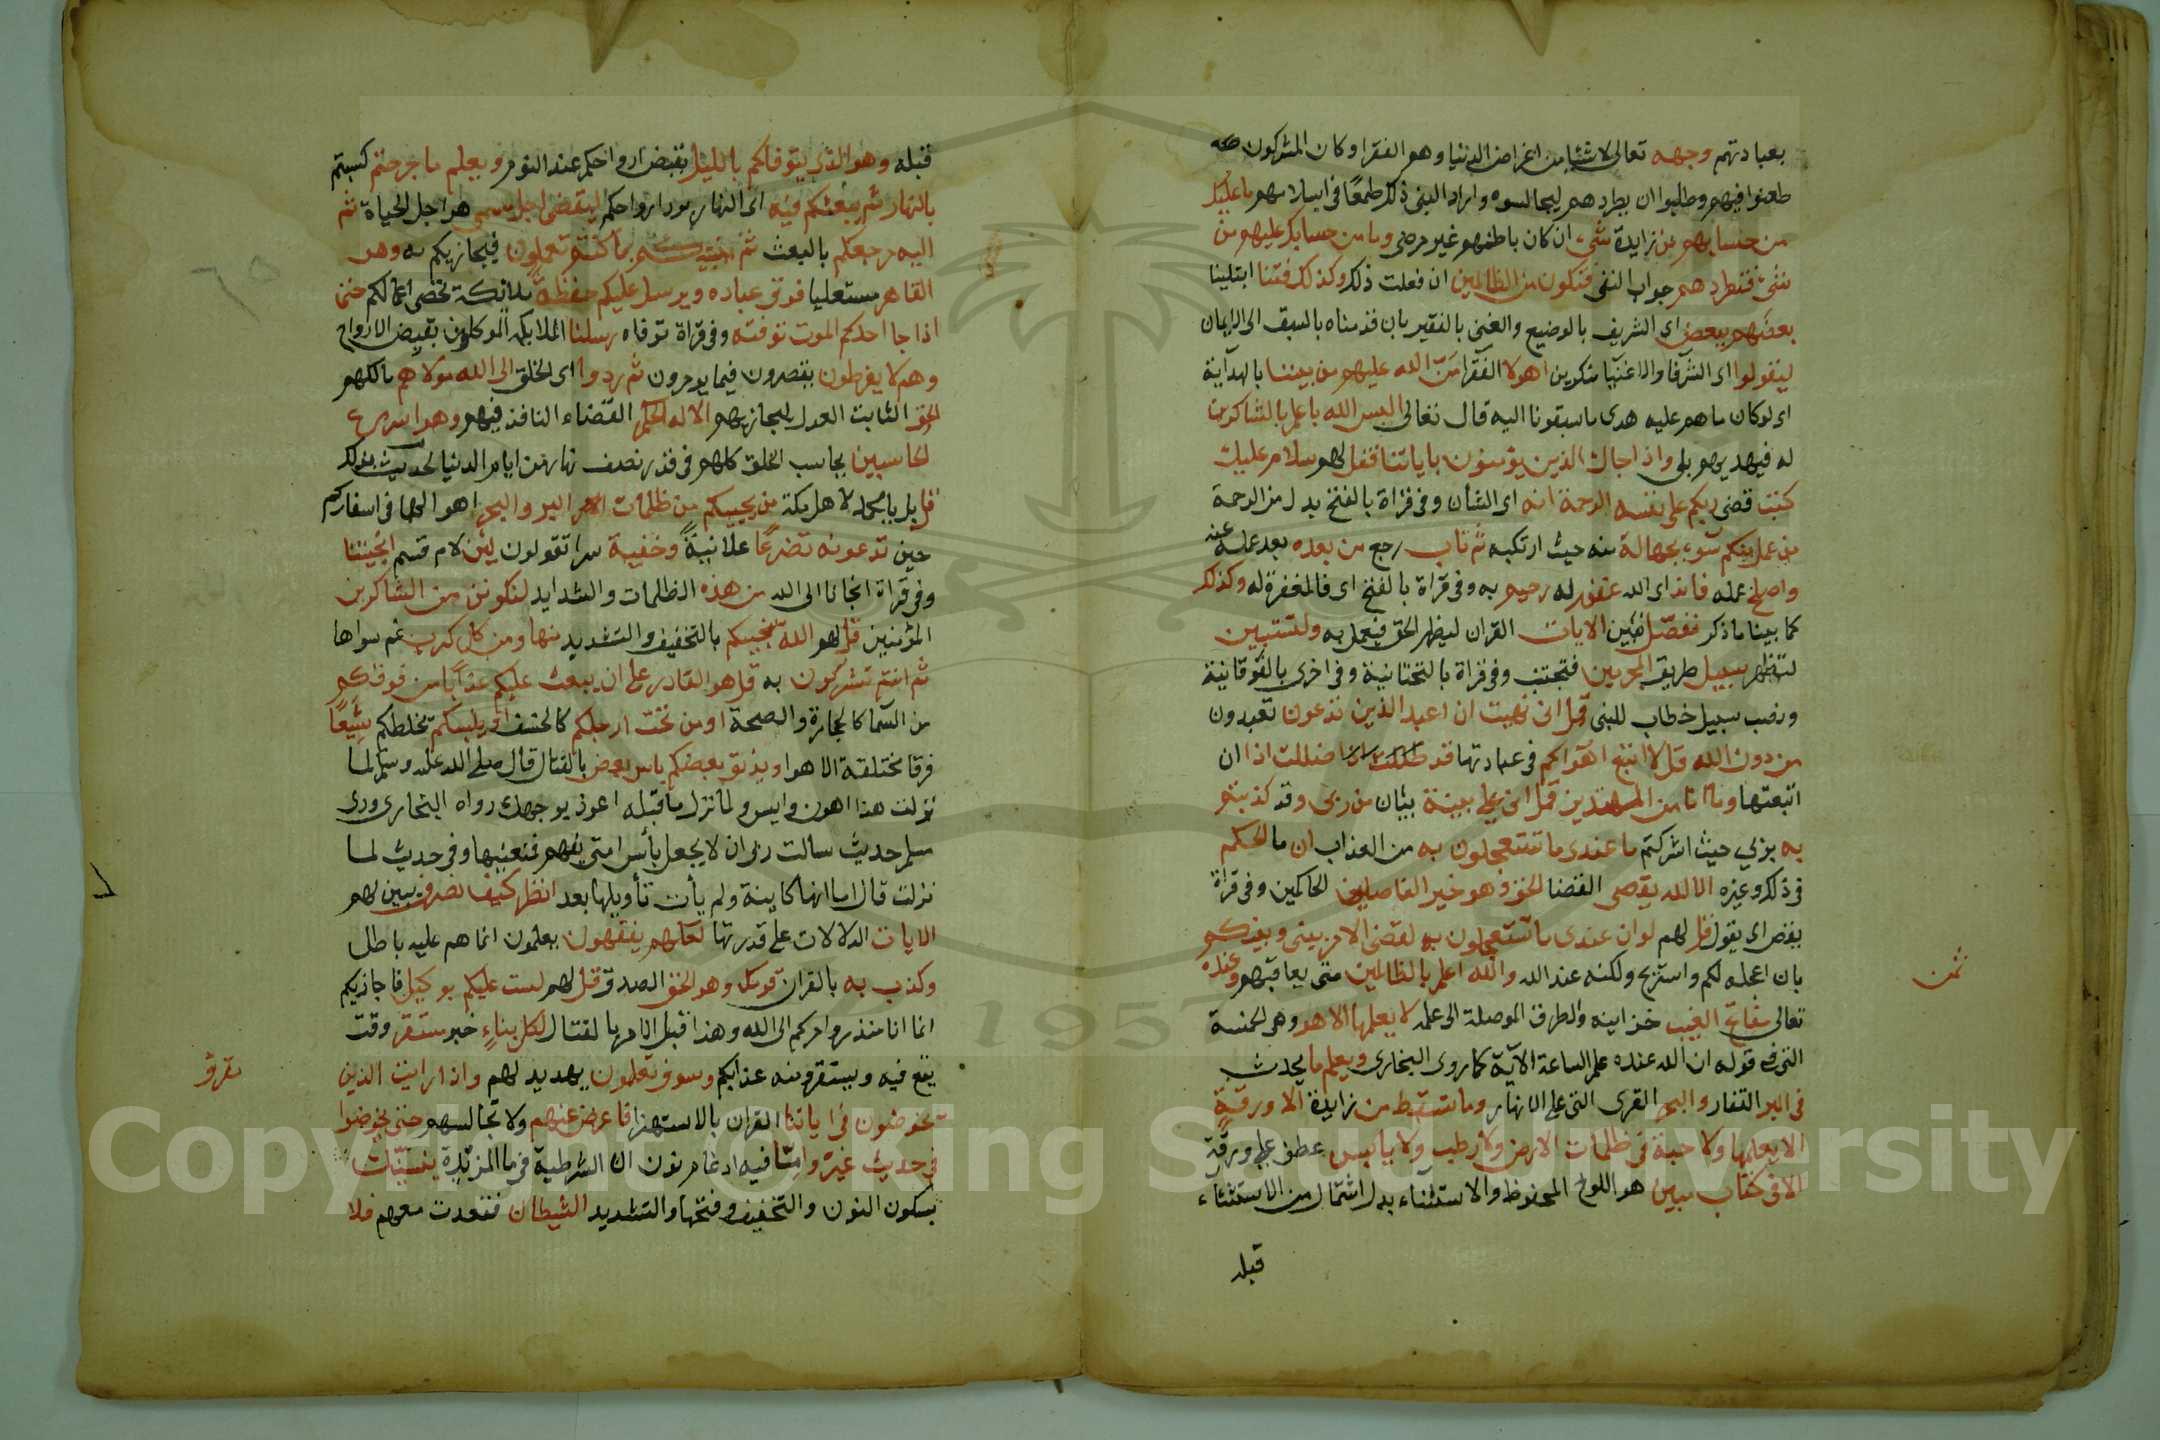 بعبادتهم وجهه تعالى لا شيئا من اغراض الدنيا وهم الفقرا وكان المشركون
طعنوا فيهم وطلبوا ان يطردهم ليجالسوه واراد النبى ذلك طمعًا فى اسلامهم ما عليك
من حسابهم من زايدة شىء ان كان باطنهم غير مرضى وما من حسابك عليهم من
شىء فتطردهم جواب النفى فتكون من الظالمين ان فعلت ذلك وكذلك فتنا ابتلينا
بعضهم ببعض اى الشريف بالوضيع والغنى بالفقير بان قدمناه بالسبق الى الايمان
ليقولوا اى الشرفا والاغنيا منكرين اهولا الفقرا من الله عليهم من بيننا بالهداية
اى لوكان ما هم عليه هدى ماسبقونا اليه قال تعالى اليس الله باعلم بالشاكرين
له فيهديهم بلى واذا جاك الذين يؤمنون باياتنا فقل لهم سلام عليك
كتب قضى ربكم على نفسه الرحمة انه اى الشأن وفى قراة بالفتح بدل من الرحمة
من عمل منكم سوء بجهالة منه حيث ارتكبه ثم تاب رجع من بعده بعد عمله عنه
واصلح عمله فانه اى الله غفور له رحيم به وفى قراة بالفتح اى فالمغفرة له وكذلك
كما بينا ما ذكر نفصل نبين الايات القران ليظهر الحق فيعمل به ولتستبين
لتظهر سبيل طريق المجرمين فتجتنب وفى قراة بالتحتانية وفى اخرى بالفوقانية
ونصب سبيل خطاب للنبى قل انى نهيت ان اعبد الذين تدعون تعبدون
من دون الله قل لا اتبع اهواكم فى عبادتها قد ضللت اذا ان
اتبعتها وما انا من المهتدين قل انى على بينة بيان من ربى وقد كذبتم
به بربى حيث اشركتم ما عندى ما تستعجلون به من العذاب ان ما الحكم
فى ذلك وغيره الا لله يقضى القضا الحق وهو خير الفاصلين الحاكمين وفى قراة
يقص اى يقول قل لهم لو ان عندى ما تستعجلون به لقضى الامر بينى وبينكم
بان اعجله لكم واستريح ولكنه عند الله والله اعلم بالظالمين متى يعاقبهم وعنده
ثمن
تعالى مفاتح الغيب خزاينه والطرق الموصلة الى علمه لا يعلمها الا هو وهى الخمسة
التى فى قوله ان الله عنده علم الساعة الآية كما روى البخارى ويعلم ما يحدث
فى البر القفار والبحر القرى التى على الانهار وما تسقط من زايدة الا ورقة
الا يعلمها ولا حبة فى ظلمات الارض ولا رطب ولا يابس عطف على ورقة
الا فى كتاب مبين هو اللوح المحفوظ والاستثناء بدل اشتمال من الاستثناء
قبله
قبله وهو الذى يتوفاكم بالليل يقبض ارواحكم عند النوم ويعلم ما جرحتم كسبتم
بالنهار ثم يبعثكم فيه اى النهار برد ارواحكم ليقضى اجل مسمى هو اجل الحياة ثم
اليه مرجعكم بالبعث ثم ينبئكم بما كنتم تعملون فيجازيكم به وهو
القاهر مستعليا فوق عباده ويرسل عليكم حفظة ملائكة تحصى اعمالكم حتى
اذا جا احدكم الموت توفته وفى قراة توفاه رسلنا الملايكه الموكلون بقبض الارواح
وهم لا يفرطون يقصرون فيما يومرون ثم ردوا اى الخلق الى الله مولاهم مالكهم
الحق الثابت العدل ليجازيهم الا له الحكم القضاء النافذ فيهم وهو اسرع
الحاسبين يحاسب الخلق كلهم فى قدر نصف نهار من ايام الدنيا لحديث بذلك
قل يا محمد لاهل مكة من ينجيكم من ظلمات البر والبحر اهوالهما فى اسفاركم
حين تدعونه تضرعًا علانيةً وخفية سرا تقولون لئن لام قسم انجيتنا
وفى قراة انجانا اى الله من هذه الظلمات والشدايد لنكونن من الشاكرين
المؤمنين قل لهم الله ينجيكم بالتخفيف والتشديد منها ومن كل كرب غم سواها
ثم انتم تشركون به قل هو القادر على ان يبعث عليكم عذابًا من فوقكم
من السما كالحجارة والصيحة او من تحت ارجلكم كالخسف او يلبسكم يخلطكم شيعًا
فرقا مختلفة الاهوا ويذيق بعضكم باس بعض بالقتال قال صلى الله عليه وسلم لما
نزلت هذا اهون وايسر ولما نزل ما قبله اعوذ بوجهك رواه البخارى وروى
مسلم حديث سالت ربى ان لا يجعل بأس امتى بينهم فمنعنيها وفى حديث لما
نزلت قال اما انها كاينة ولم يأت تأويلها بعد انظر كيف نصرف نبين لهم
الايات الدلالات على قدرتها لعلهم يفقهون يعلمون انما هم عليه باطل
وكذب به بالقران قومك وهو الحق الصدق قل لهم لست عليكم بوكيل فاجازيكم
انما انا منذر وامركم الى الله وهذا قبل الامر بالقتال لكل نباءٍ خبر مستقر وقت
يقع فيه ويستقر ومنه عذابكم وسوف تعلمون تهديد لهم واذا رايت الذين
يخوضون فى اياتنا القران بالاستهزا فاعرض عنهم ولا تجالسهم حتى يخوضوا
فى حديث غيره واما فيه ادغام نون ان الشرطية فى ما المزيدة ينسينك
بسكون النون والتخفيف وفتحها والتشديد الشيطان فقعدت معهم فلا
1957
Copyright © King Saud University